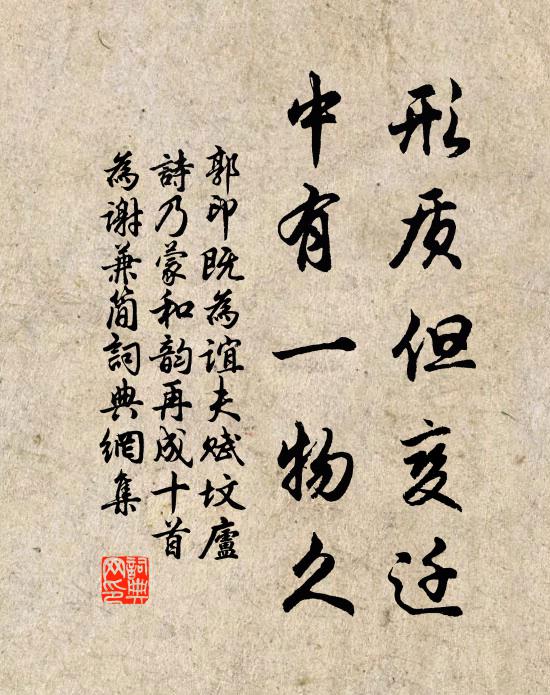 形质但变迁
中有一物久
郭印既為谊夫赋坟廬
詩乃蒙和韵再成十首
為谢兼简詞典網集
詞典
网印